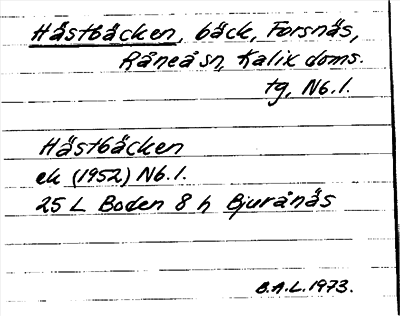 Hästbäcken, bäck, Forsnäs,
Råneå sn, Kalix doms.
tg, Nb.l.
Hästbäcken
ek (1952) Nb.l.
25 L Boden 8 h Bjuränäs
B.A.L. 1973.